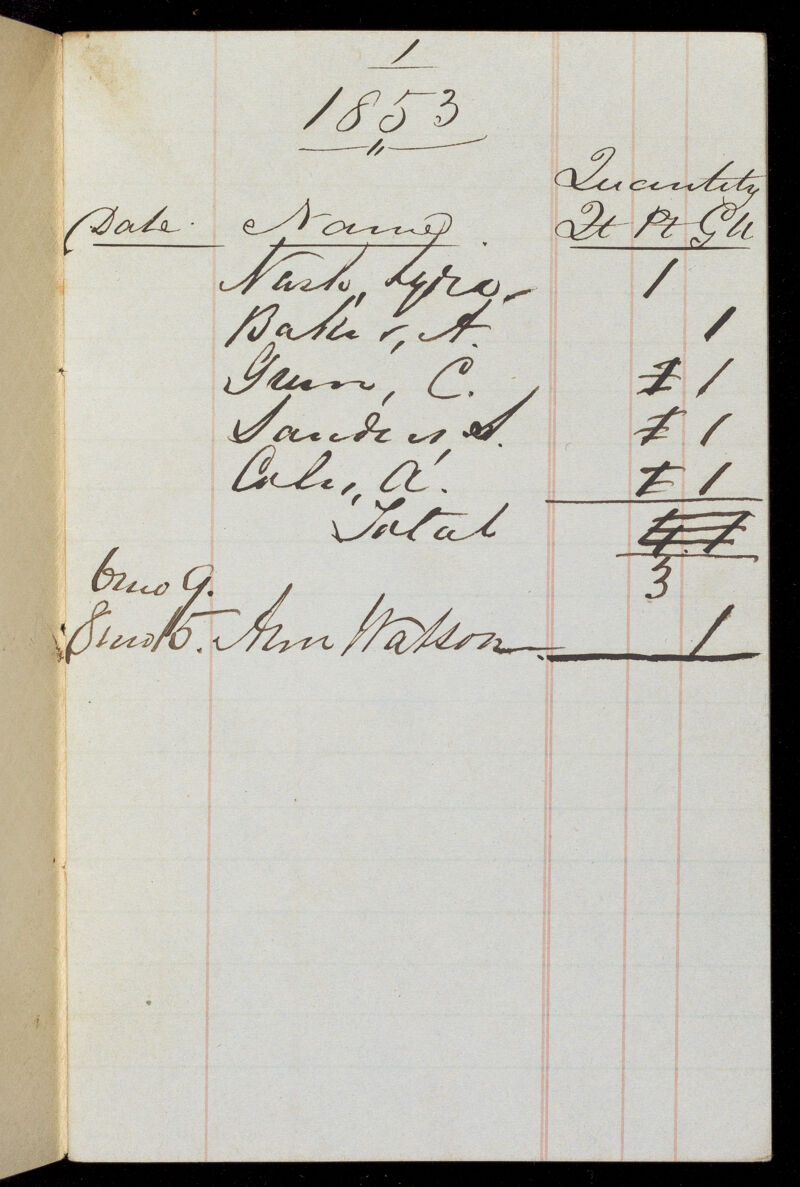 1
1853
Quantity
Date. Name. Qt Pt Gll
Nash, Lydia 1
Baker, A. 1
Green, C. 1 1
Sanders, S. 1 1
Cole, A. 1 1
Total 4 1
3
6mo 9.
8mo 15. Ann Watson 1